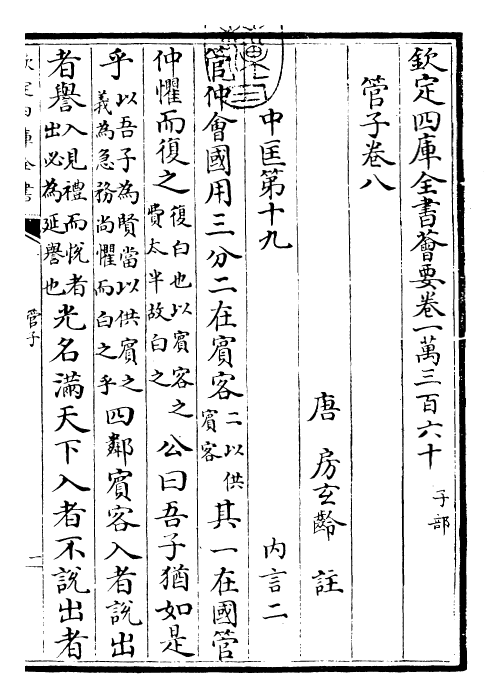 欽定四庫全書薈要卷一萬三百六十 子部
管子卷八
唐 房玄齡 註
中匡第十九 內言二
管仲會國用三分二在賓客二以供賓客其一在國管
仲懼而復之復白也以賓客之費太半故白之公曰吾子猶如是
乎以吾子為賢當以供賓之義為急務尚懼而白之乎四鄰賓客入者說出
者譽入見禮而悅者出必為延譽也光名滿天下入者不說出者
欽定四庫全書
管子
一